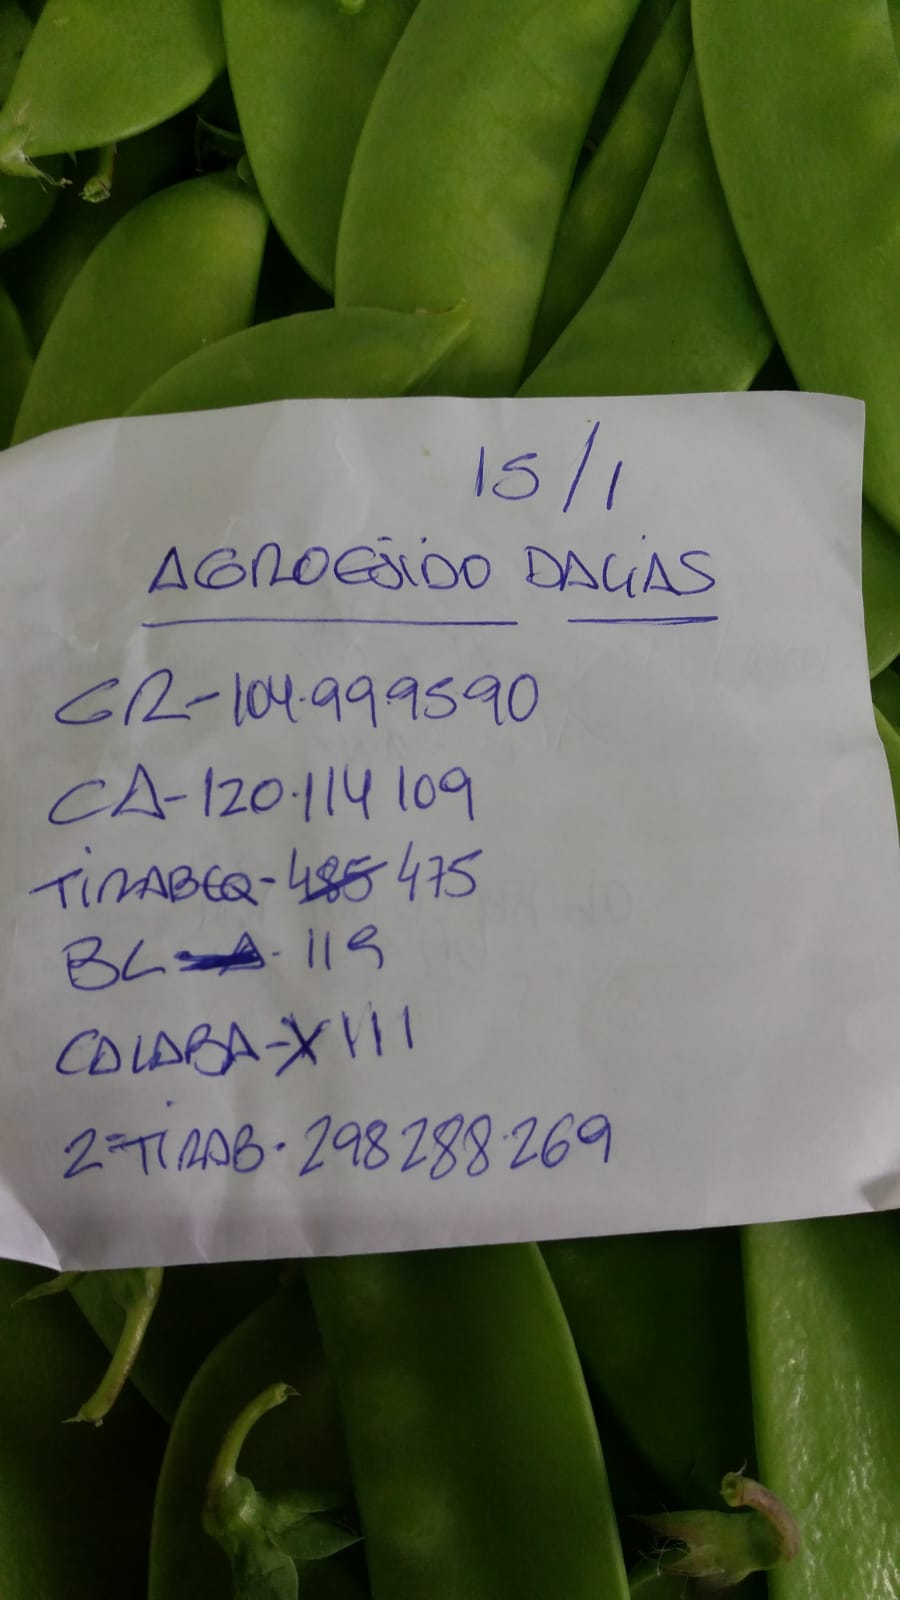 15/1
AGROEJIDO DALIAS
GR-104.99.95.90
CA-120.114 109
TIRABEQ-485 475
BL - 119
CALABA-X111
2=TIRAB. 298 288.269